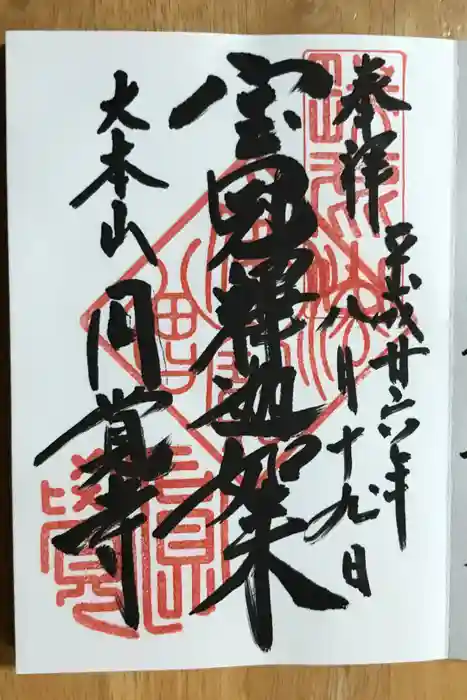 奉拝
平成廿六年
八月十九日
宝冠釋迦
大本山
円覚寺